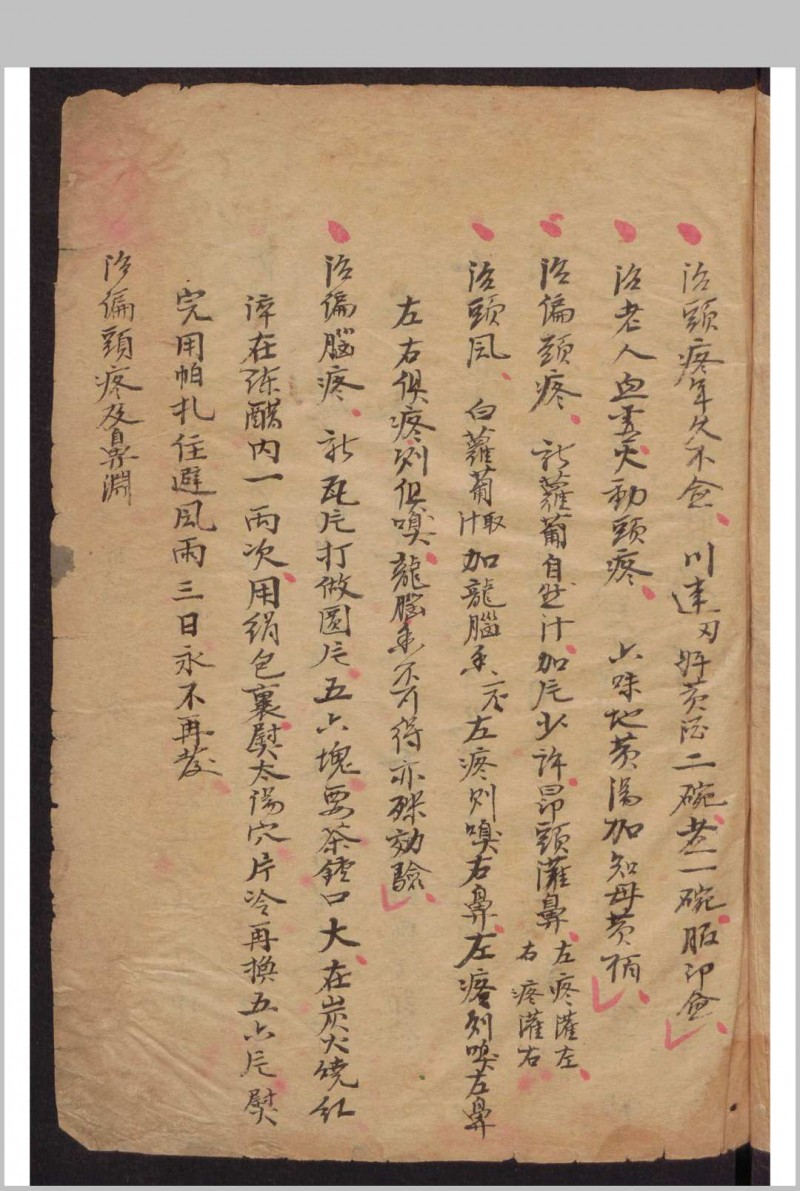 治頭疼年久不愈、川連 好黃酒二碗煮一碗服即愈
治老人血虛火動頭疼、六味地黃湯加知母黃栢
治偏頭疼、新蘿蔔自然汁加片少許昂頭灌鼻左疼灌左右疼灌右
治頭風、白蘿蔔取汁加龍腦香 左疼則嗅右鼻左疼則嗅左鼻
左右俱疼則俱嗅龍腦香 得亦殊効驗
治偏腦疼、新瓦片打做圓片五六塊要茶鍾口大在炭火燒紅
淬在陳醋内一兩次用絹包裹熨太陽穴片冷再換五六片熨
完用帕扎住避風兩三日永不再發
治偏頭疼及鼻淵